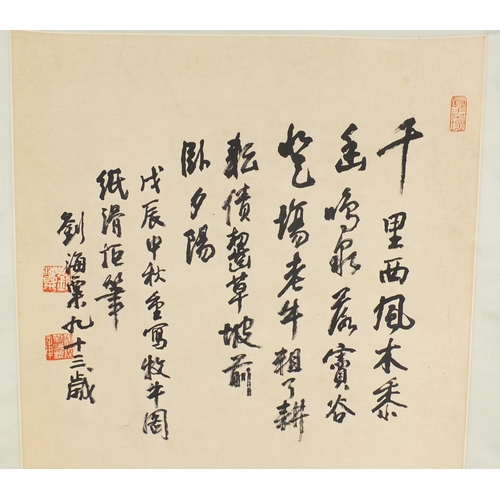 千里西風禾黍
香鳴泉落竇谷
登場老牛粗了耕
耘債齧草坡前
臥夕陽
戊辰中秋重寫牧牛圖
紙滑拒筆
劉海粟九十三歲